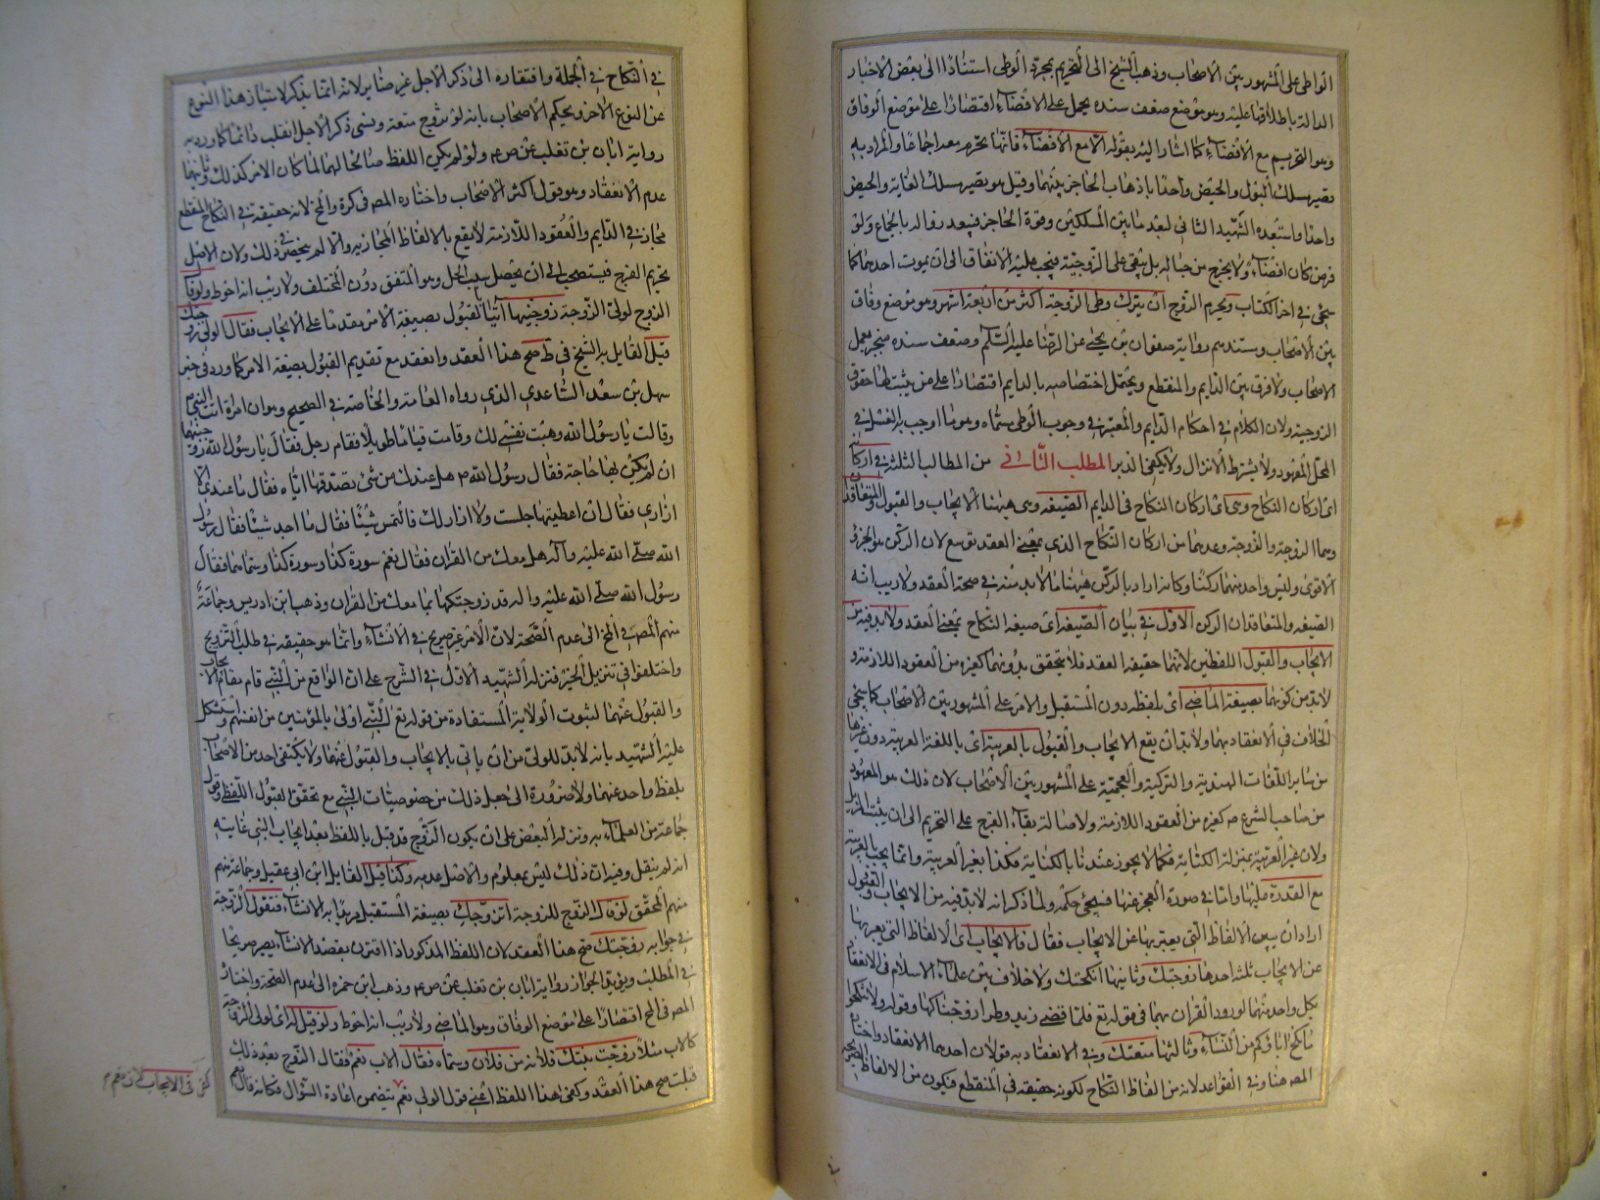 الواطى على المشهور بين الاصحاب وذهب الشيخ الى التحريم بمجرد الوطى استنادا الى بعض الاخبار
الدالة باطلاقها عليه وهو موضع ضعف سنده يحمل على الافضاء اقتصارا على موضع الوفاق
وهو التحريم مع الافضاء كما اشار اليه بقوله الا مع الافضاء فانها تحرم معه اجماعا والمراد به
تصير مسلك البول والحيض واحدا باذهاب الحاجز بينهما وقيل هو تصير مسلك الغايط والحيض
واحدا واستبعده الشهيد الثانى لبعد ما بين المسلكين وقوة الحاجز فيبعد زواله بالجماع ولو
فرض كان افضاء ولا يخرج من حباله بل تبقى على الزوجية فيجب عليه الانفاق الى ان يموت احدهما كما
يجئ في اخر الكتاب ويحرم الزوج ان يترك وطى الزوجة اكثر من اربعة اشهر وهو موضع وفاق
بين الاصحاب ومستندهم رواية صفوان بن يحيى عن الرضا عليه السلام وضعف سنده منجبر بعمل
الاصحاب ولا فرق بين الدايم والمنقطع ويحتمل اختصاصه بالدايم اقتصارا على من يثبت لها حقوق
الزوجية ولان الكلام في احكام الدايم والمعتبر في وجوب الوطى مسماه وهو ما اوجب الغسل في
المحل المعهود ولا يشترط الانزال ولا يكفى الدبر المطلب الثانى من المطالب الثلثة في اركانه
اى اركان النكاح وهى اى اركان النكاح فى الدايم الصيغة وهى هيهنا الايجاب والقبول والمتعاقدان
وهما الزوجة والزوجة وعدهما من اركان النكاح الذي بمعنى العقد توسع لان الركن هو الجزؤ
الاقوى وليس واحد منهما ركنا وكانه اراد بالركن هيهنا ما لا بد منه في صحة العقد ولا ريب انه
الصيغة والمتعاقدان الركن الاول في بيان الصيغة اى صيغة النكاح بمعنى العقد ولا بد فيه من
الايجاب والقبول اللفظين لانهما حقيقة العقد فلا يتحقق بدونهما كغيره من العقود اللازمة و
لا بد من كونهما بصيغة الماضى اى بلفظه دون المستقبل والامر على المشهور بين الاصحاب كما يجئ
الخلاف في الانعقاد بهما ولا بد ان يقع الايجاب والقبول بالعربية اى باللغة العربية دون غيرها
من ساير اللغات الهندية والتركية والعجمية على المشهور بين الاصحاب لان ذلك هو المعهود
من صاحب الشرع ص كغيره من العقود اللازمة ولاصالة بقاء الفرج على التحريم الى ان يثبت المزيل
ولان غير العربية بمنزلة الكناية فكما لا يجوز عندنا بالكناية فكذا بغير العربية وانما يجب بالعربية
مع القدرة عليها واما في صورة العجز عنها فسيجئ حكمه ولما ذكر انه لا بد فيه من الايجاب والقبول
اراد ان يبين الالفاظ التى يعتبر بها عن الايجاب فقال فالايجاب اى الالفاظ التى يعبر بها
عن الايجاب ثلثة احدها زوجتك وثانيها انكحتك ولا خلاف بين علماء الاسلام فى الانعقاد
بكل واحد منهما لورود القران بهما في قوله تع فلما قضى زيد وطرا زوجناكها وقوله ولا تنكحوا
ما نكح اباؤكم من النساء وثالثها متعتك وفي الانعقاد به قولان احدهما الانعقاد واختاره
المصـ هنا وفي القواعد لانه من الفاظ النكاح لكونه حقيقة في المنقطع فيكون من الالفاظ الصريحة
في النكاح في الجملة وافتقاره الى ذكر الاجل غير ضاير لانه انما يذكر لامتياز هذا النوع
عن النوع الاخر ويحكم الاصحاب بانه لو تزوج متعة ونسى ذكر الاجل انقلب دائما كما ورد به
رواية ابان بن تغلب عن ص ع ولو لم يكن اللفظ صالحا لهما لما كان الامر كذلك وثانيهما
عدم الانعقاد وهو قول اكثر الاصحاب واختاره المصـ فى كرة والمخ لانه حقيقة في النكاح المنقطع
مجاز في الدايم والعقود اللازمة لا يقع بالالفاظ المجازية والا لم ينحصر في ذلك ولان الاصل
تحريم الفرج فيستصحب الى ان يحصل سبب الحل وهو المتفق دون المختلف ولا ريب انه احوط ولو قال
الزوج لولى الزوجة زوجنيها اتيا بالقبول بصيغة الامر مقدما على الايجاب فقال الولى زوجتك
قيل القايل به الشيخ في ط صح هذا العقد وانعقد مع تقديم القبول بصيغة الامر كما ورد فى خبر
سهل بن سعد الساعدي الذي رواه العامة والخاصة في الصحيح وهو ان امراة اتت النبي ص
وقالت يا رسول الله وهبت نفسي لك وقامت قياما طويلا فقام رجل فقال يا رسول الله زوجنيها
ان لم يكن لك بها حاجة فقال رسول الله ص هل عندك من شئ تصدقها اياه فقال ما عندي الا
ازاري فقال ان اعطيتها جلست ولا ازار لك فالتمس شيئا فقال ما اجد شيئا فقال رسول
الله صلى الله عليه وآله هل معك من القران فقال نعم سورة كذا وسورة كذا وسماهما فقال
رسول الله صلى الله عليه واله قد زوجتكها بما معك من القران وذهب ابن ادريس وجماعة
منهم المصـ في المخ الى عدم الصحة لان الامر غير صريح في الانشاء وانما هو حقيقة في طلب التزويج
واختلفوا في تنزيل الخبر فنزله الشهيد الاول في الشرح على ان الواقع من النبي قام مقام الايجاب
والقبول عنهما لثبوت الولاية المستفادة من قوله تع النبي اولى بالمؤمنين من انفسهم واستشكل
عليه الشهيد بانه لا بد للولى من ان ياتى بالايجاب والقبول عنهما ولا يكتفى احد من الاصحاب
بلفظ واحد عنهما ولا ضرورة الى جعل ذلك من خصوصيات النبي مع تحقق القبول اللفظى وقول
جماعة من العلماء به ونزله البعض على ان يكون الزوج قد قبل باللفظ بعد ايجاب النبى غايته
انه لم ينقل وفيه ان ذلك ليس بمعلوم والاصل عدمه وكذا قيل القايل ابن ابي عقيل وجماعة منهم
منهم المحقق لو قال الزوج للزوجة اتزوجك بصيغة المستقبل مريدا به الانشاء فتقول الزوجة
في جوابه زوجتك صح هذا العقد لان اللفظ المذكور اذا اقترن بقصد الانشاء يصير صريحا
في المطلب ويؤيد الجواز رواية ابان بن تغلب عن ص ع وذهب ابن حمزه الى عدم الصحة واختاره
المصـ فى المخ اقتصارا على موضع الوفاق وهو الماضى ولا ريب انه احوط ولو قيل له اى لولى الزوجة
كالاب مثلا زوجت بنتك فلانة من فلان وسماه فقال الاب نعم فقال الزوج بعد ذلك
قبلت صح هذا العقد وكفى هذا اللفظ اعنى قول الولى نعم تتضمن اعادة السؤال فكانه قال نعم
كفى فى الايجاب لان نعم